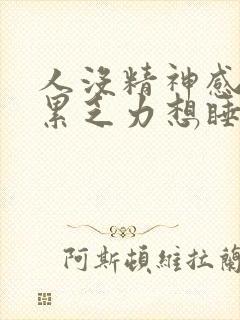 人沒精神感
累乏力想睡
阿斯頓維拉蘭